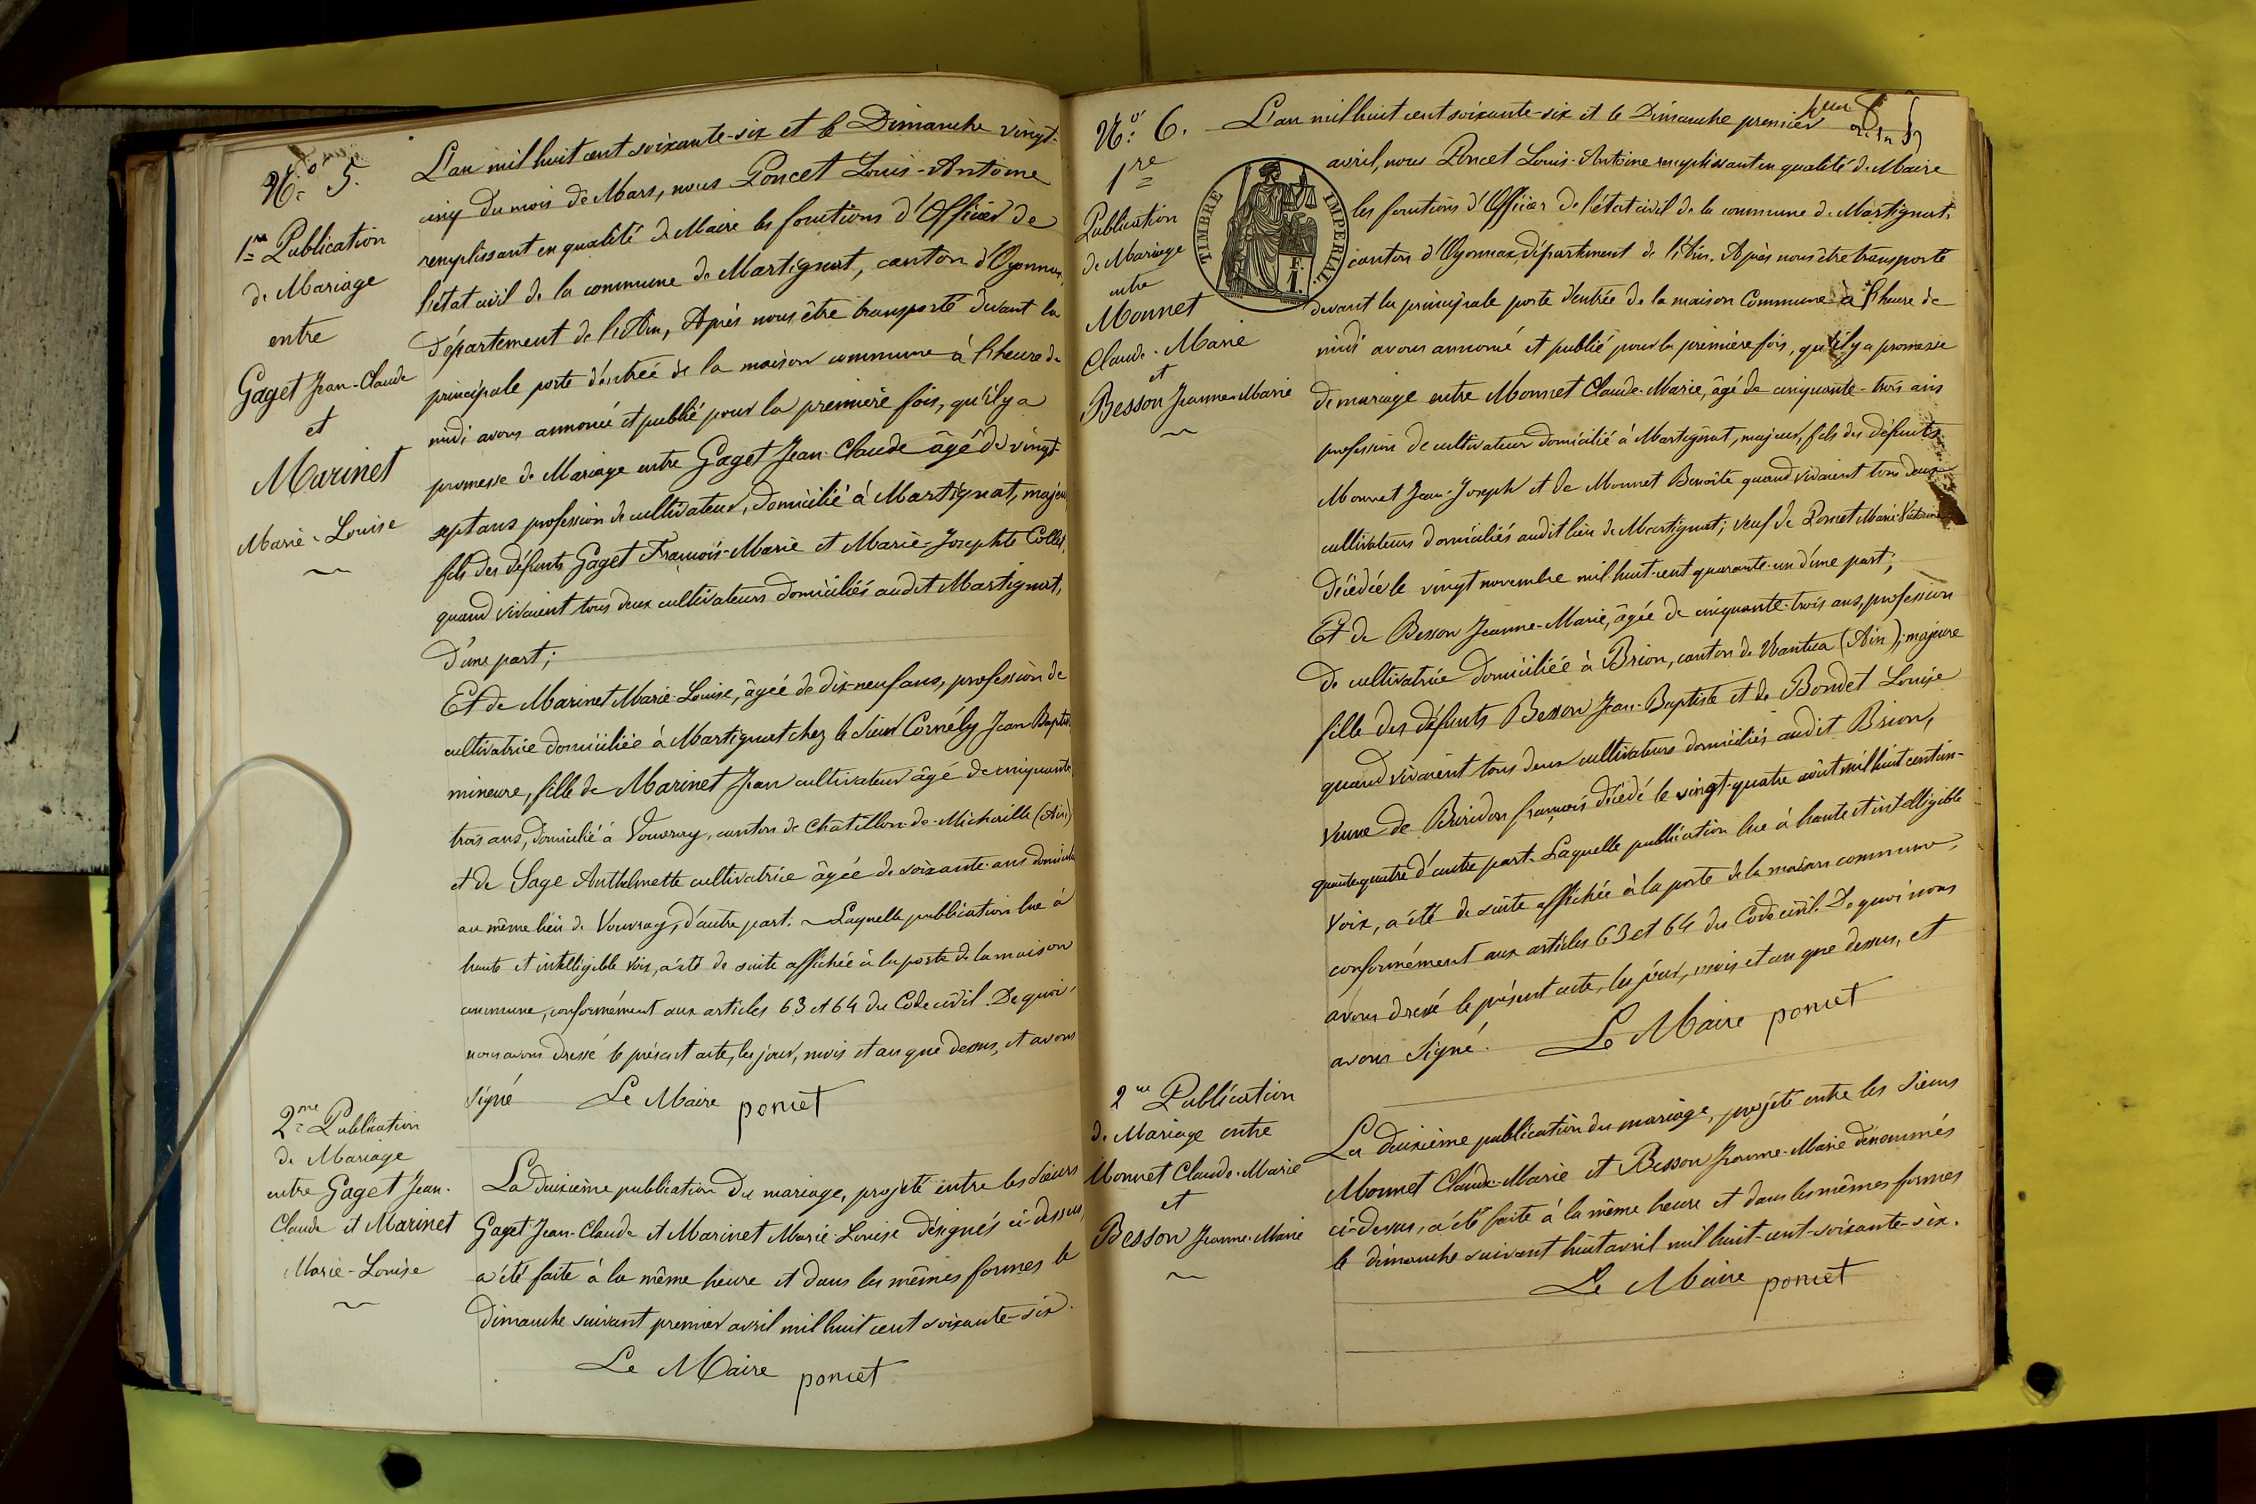 N.° 5.
1re Publication
de Mariage
entre
Gaget Jean-Claude
et
Marinet
Marie-Louise
L'an mil huit cent soixante-six et le Dimanche vingt-
cinq du mois de Mars, nous Poncet Louis-Antoine
remplissant en qualité de Maire les fonctions d'Officier de
l'état civil de la commune de Martignat, canton d'Oyonnax,
département de l'Ain, Après nous être transporté devant la
principale porte d'entrée de la maison commune à l'heure de
midi avons annoncé et publié pour la première fois, qu'il y a
promesse de Mariage entre Gaget Jean-Claude âgé de vingt-
sept ans profession de cultivateur, domicilié à Martignat, majeur,
fils des défunts Gaget François-Marie et Marie-Josephte Collet,
quand vivaient tous deux cultivateurs domiciliés audit Martignat,
d'une part;
Et de Marinet Marie-Louise, âgée de dix-neuf ans, profession de
cultivatrice domiciliée à Martignat chez le sieur Cornély Jean-Baptis
mineure, fille de Marinet Jean cultivateur âgé de cinquante
trois ans, domicilié à Vouvray, canton de Chatillon-de-Michaille (Ain)
et de Sage Anthelmette cultivatrice âgée de soixante ans domicili
au même lieu de Vouvray, d'autre part. ~ Laquelle publication lue à
haute et intelligible voix, a été de suite affichée à la porte de la maison
commune, conformément aux articles 63 et 64 du Code civil. De quoi
nous avons dressé le présent acte, les jour, mois et an que dessus, et avons
signé Le Maire poncet
2me Publication
de Mariage
entre Gaget Jean-
Claude et Marinet
Marie-Louise
La deuxième publication du mariage, projeté entre les sieurs
Gaget Jean-Claude et Marinet Marie-Louise désignés ci-dessus,
a été faite à la même heure et dans les mêmes formes le
dimanche suivant premier avril mil huit cent soixante-six.
Le Maire poncet
N.° 6.
1re
Publication
de Mariage
entre
Monnet
Claude-Marie
et
Besson Jeanne-Marie
TIMBRE IMPERIAL
1 F.
L'an mil huit cent soixante-six et le Dimanche premier
avril, nous Poncet Louis-Antoine remplissant en qualité de Maire
les fonctions d'Officier de l'état civil de la commune de Martignat,
canton d'Oyonnax, département de l'Ain. Après nous être transporté
devant la principale porte d'entrée de la maison Commune à l'heure de
midi avons annoncé et publié pour la première fois, qu'il y a promesse
de mariage entre Monnet Claude-Marie, âgé de cinquante-trois ans
profession de cultivateur domicilié à Martignat, majeur, fils des défunts
Monnet Jean-Joseph et de Monnet Benoîte quand vivaient tous deux
cultivateurs domiciliés audit lieu de Martignat; veuf de Poncet Marie
décédée le vingt novembre mil huit-cent quarante-un d'une part;
Et de Besson Jeanne-Marie, âgée de cinquante-trois ans, profession
de cultivatrice domiciliée à Brion, canton de Nantua (Ain); majeure
fille des défunts Besson Jean-Baptiste et de Bondet Louise
quand vivaient tous deux cultivateurs domiciliés audit Brion,
veuve de François décédé le vingt-quatre août mil huit cent cin-
quante quatre d'autre part. Laquelle publication lue à haute et intelligible
voix, a été de suite affichée à la porte de la maison commune,
conformément aux articles 63 et 64 du Code civil. De quoi nous
avons dressé le présent acte, les jour, mois et an que dessus, et
avons signé. Le Maire poncet
2me Publication
de Mariage entre
Monnet Claude-Marie
et
Besson Jeanne-Marie
La deuxième publication du mariage, projeté entre les sieurs
Monnet Claude-Marie et Besson Jeanne-Marie dénommés
ci-dessus, a été faite à la même heure et dans les mêmes formes
le dimanche suivant huit avril mil huit-cent-soixante-six.
Le Maire poncet